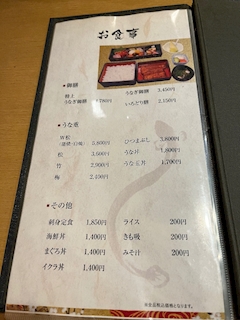 お食事
●御膳
特上
うなぎ御膳 3,450円
いろどり膳 2,150円
●うな重
W松 5,800円
ひつまぶし 3,800円
松 3,500円
うな丼 1,800円
竹 2,900円
うな玉丼 1,700円
梅 2,400円
●その他
刺身定食 1,850円
ライス 200円
海鮮丼 1,400円
きも吸 200円
まぐろ丼 1,400円
みそ汁 200円
イクラ丼 1,400円